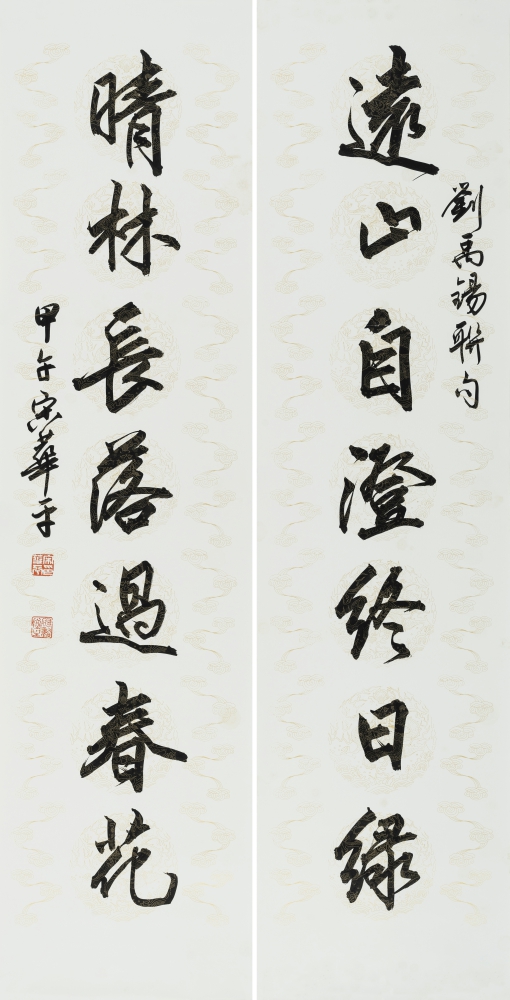 劉禹錫聯句
遠山自澄終日綠
晴林長落過春花
甲午宋華平